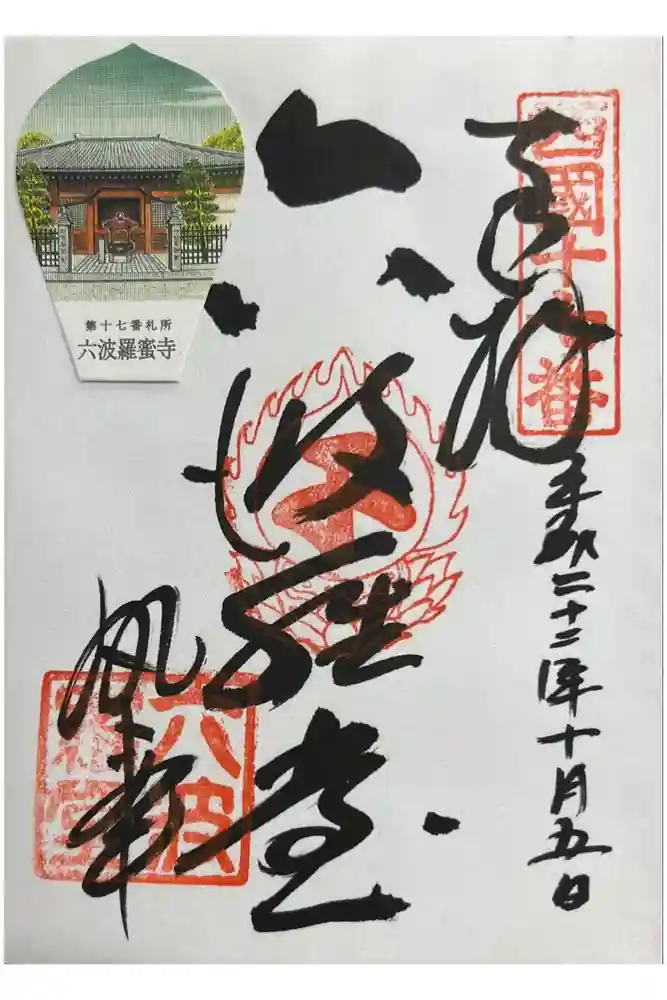 西國十七番
奉拝
平成二十二年十月五日
六波羅堂
六波
第十七番札所
六波羅蜜寺